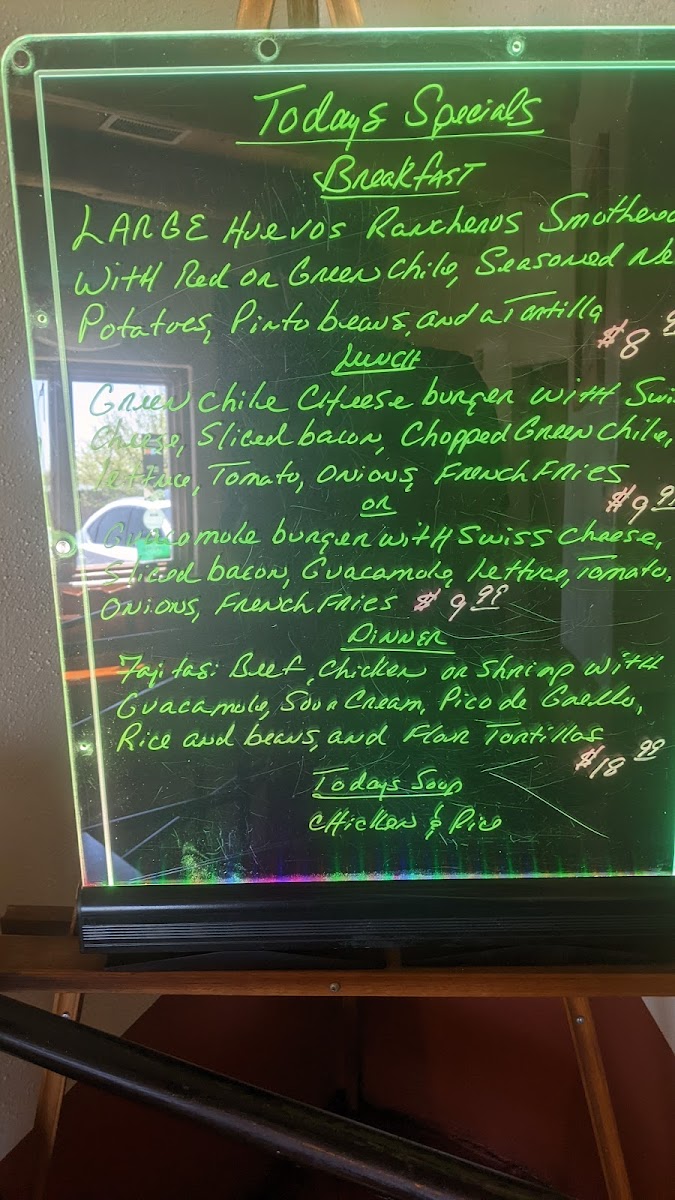 Todays Specials
Breakfast
LARGE Huevos Rancheros Smothered
With Red or Green Chile, Seasoned Ne
Potatoes, Pinto beans, and a Tortilla
$8 9
Lunch
Green Chile Cheese burger with Swi
Cheese, Sliced bacon, Chopped Green Chile,
Lettuce, Tomato, Onions, French Fries
$9 99
or
Guacamole burger with Swiss Cheese,
Sliced bacon, Guacamole, Lettuce, Tomato,
Onions, French Fries $9 99
Dinner
Fajitas: Beef, Chicken or Shrimp with
Guacamole, Sour Cream, Pico de Gaello,
Rice and beans, and Flour Tortillas
$18 99
Todays Soup
Chicken & Rice